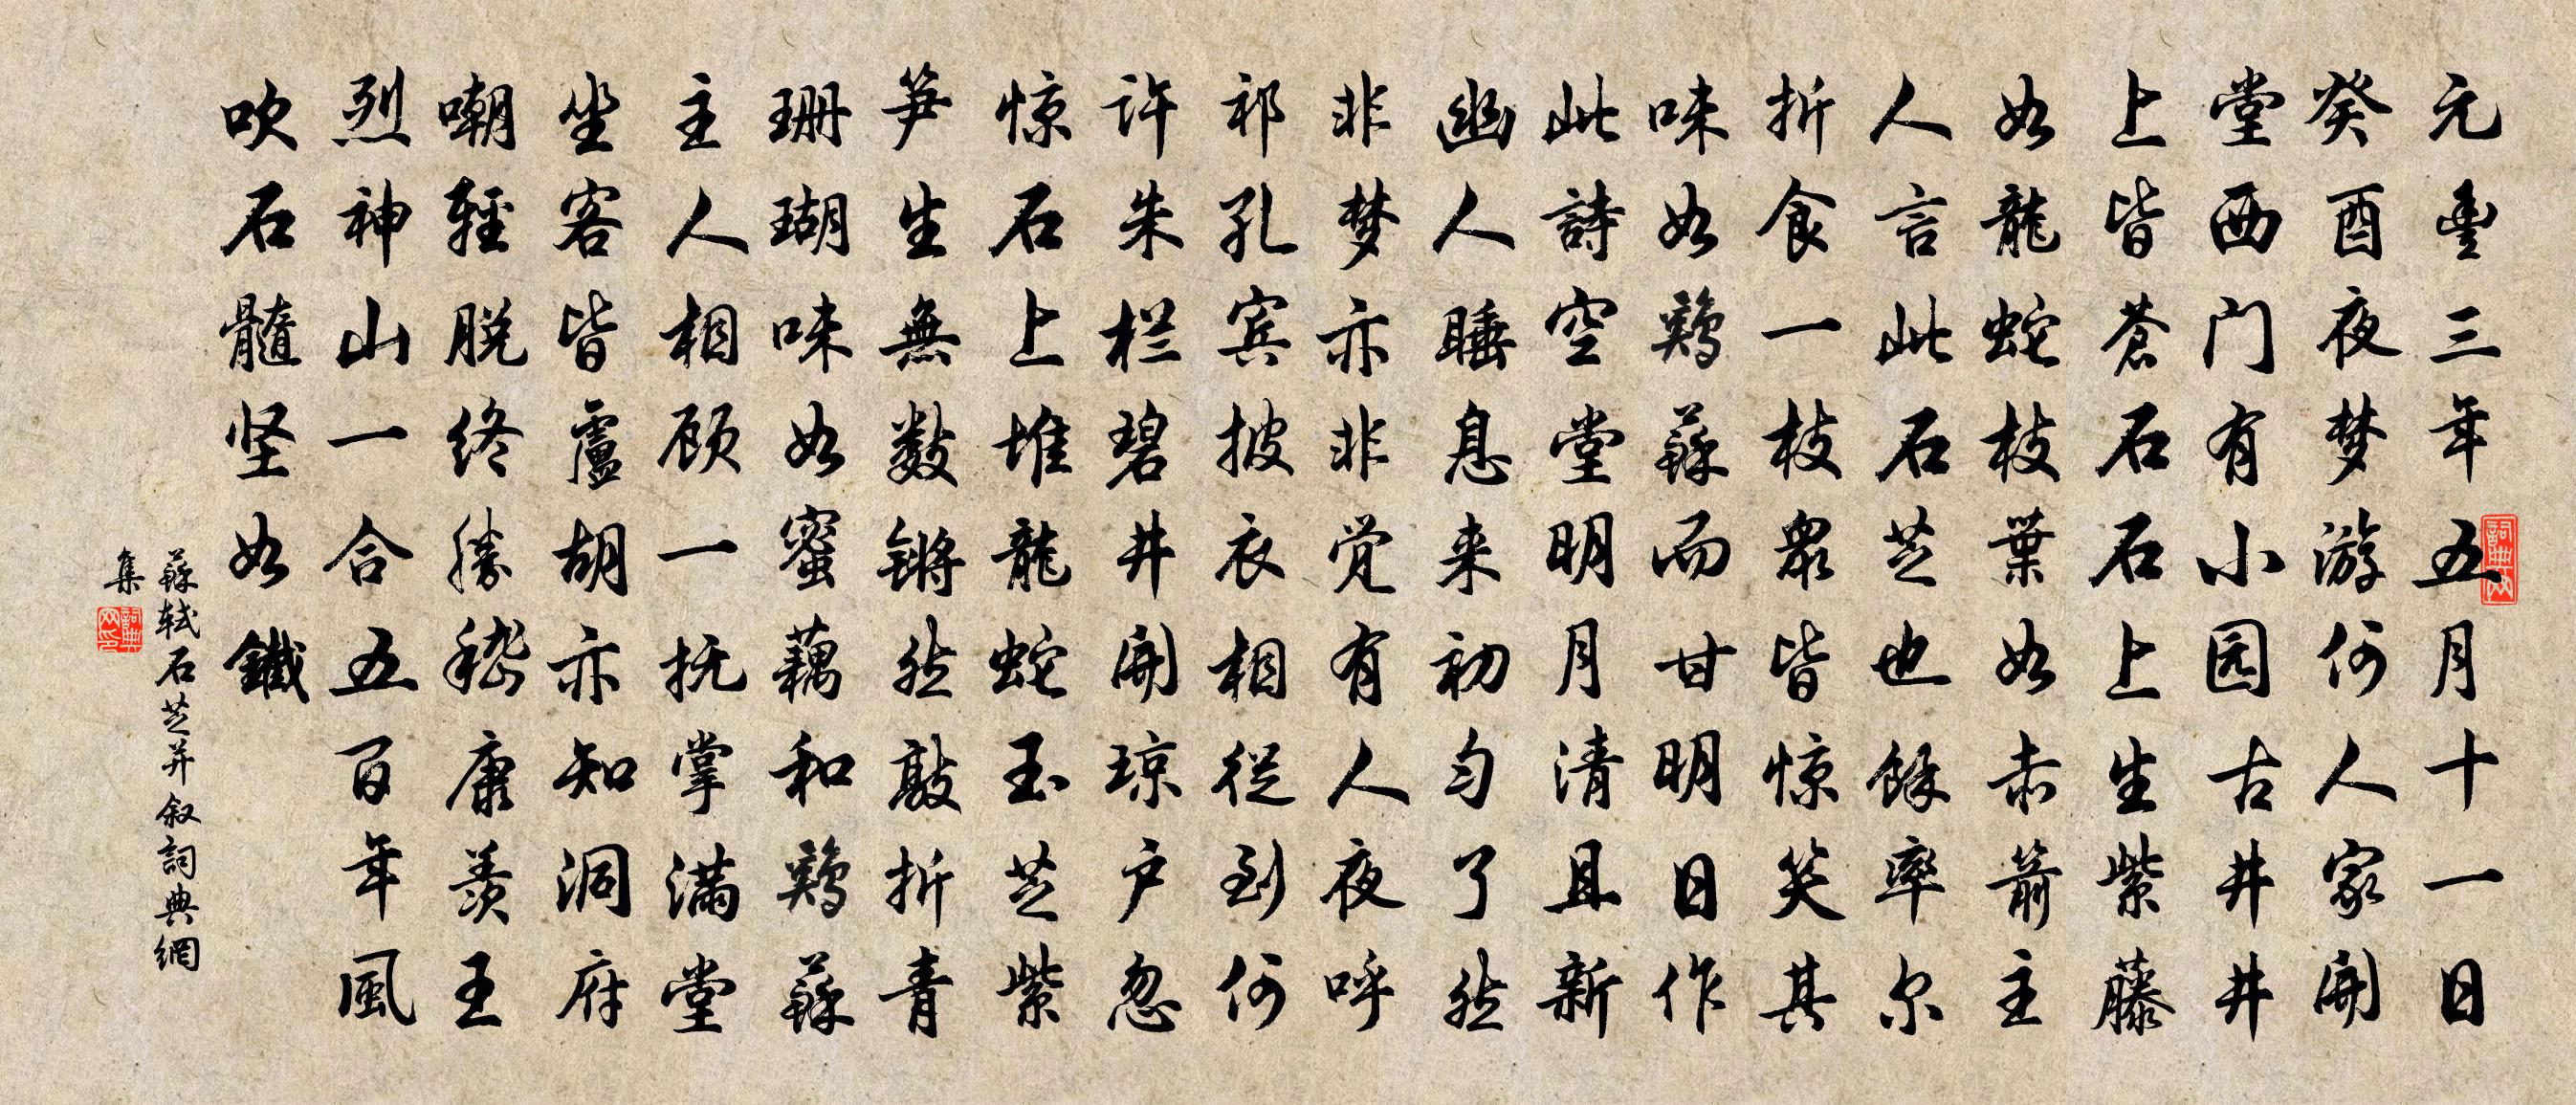 元豊三年五月十一日
癸酉夜梦游何人家開
堂西门有小园古井井
上皆蒼石石上生紫藤
如龍蛇枝葉如赤箭主
人言此石芝也餘率尔
折食一枝眾皆惊笑其
味如鷄蘇而甘明日作
此詩空堂明月清且新
幽人睡息来初匀了然
非梦亦非觉有人夜呼
祁孔宾披衣相從到何
许朱栏碧井開琼户忽
惊石上堆龍蛇玉芝紫
笋生無数锵然敲折青
珊瑚味如蜜藕和鷄蘇
主人相顾一抚掌滿堂
坐客皆盧胡亦知洞府
嘲輕脱终勝嵇康羡王
烈神山一合五百年風
吹石髓坚如鐵
蘇轼石芝并叙詞典網
集
詞典网
詞典网印